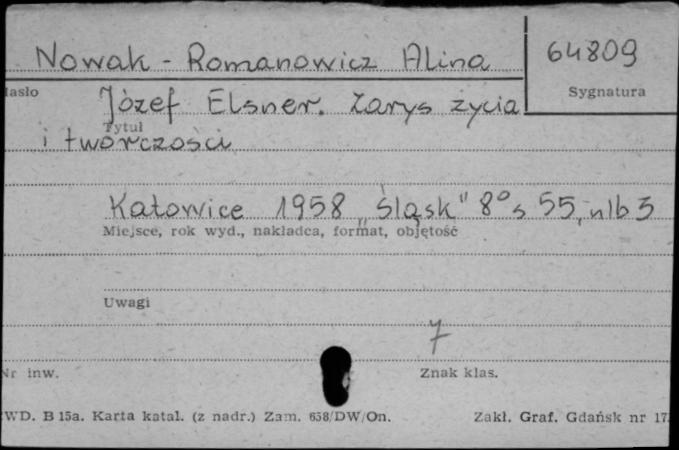 Nowak - Romanowicz Alina
64809
Hasło
Sygnatura
Józef Elsner. Zarys życia
Tytuł
i twórczości
Katowice 1958 „Śląsk" 8° s 55, nlb 3
Miejsce, rok wyd., nakładca, format, objętość
Uwagi
7
Nr inw.
Znak klas.
WD. B 15a. Karta katal. (z nadr.) Zam. 658/DW/On.
Zakł. Graf. Gdańsk nr 17